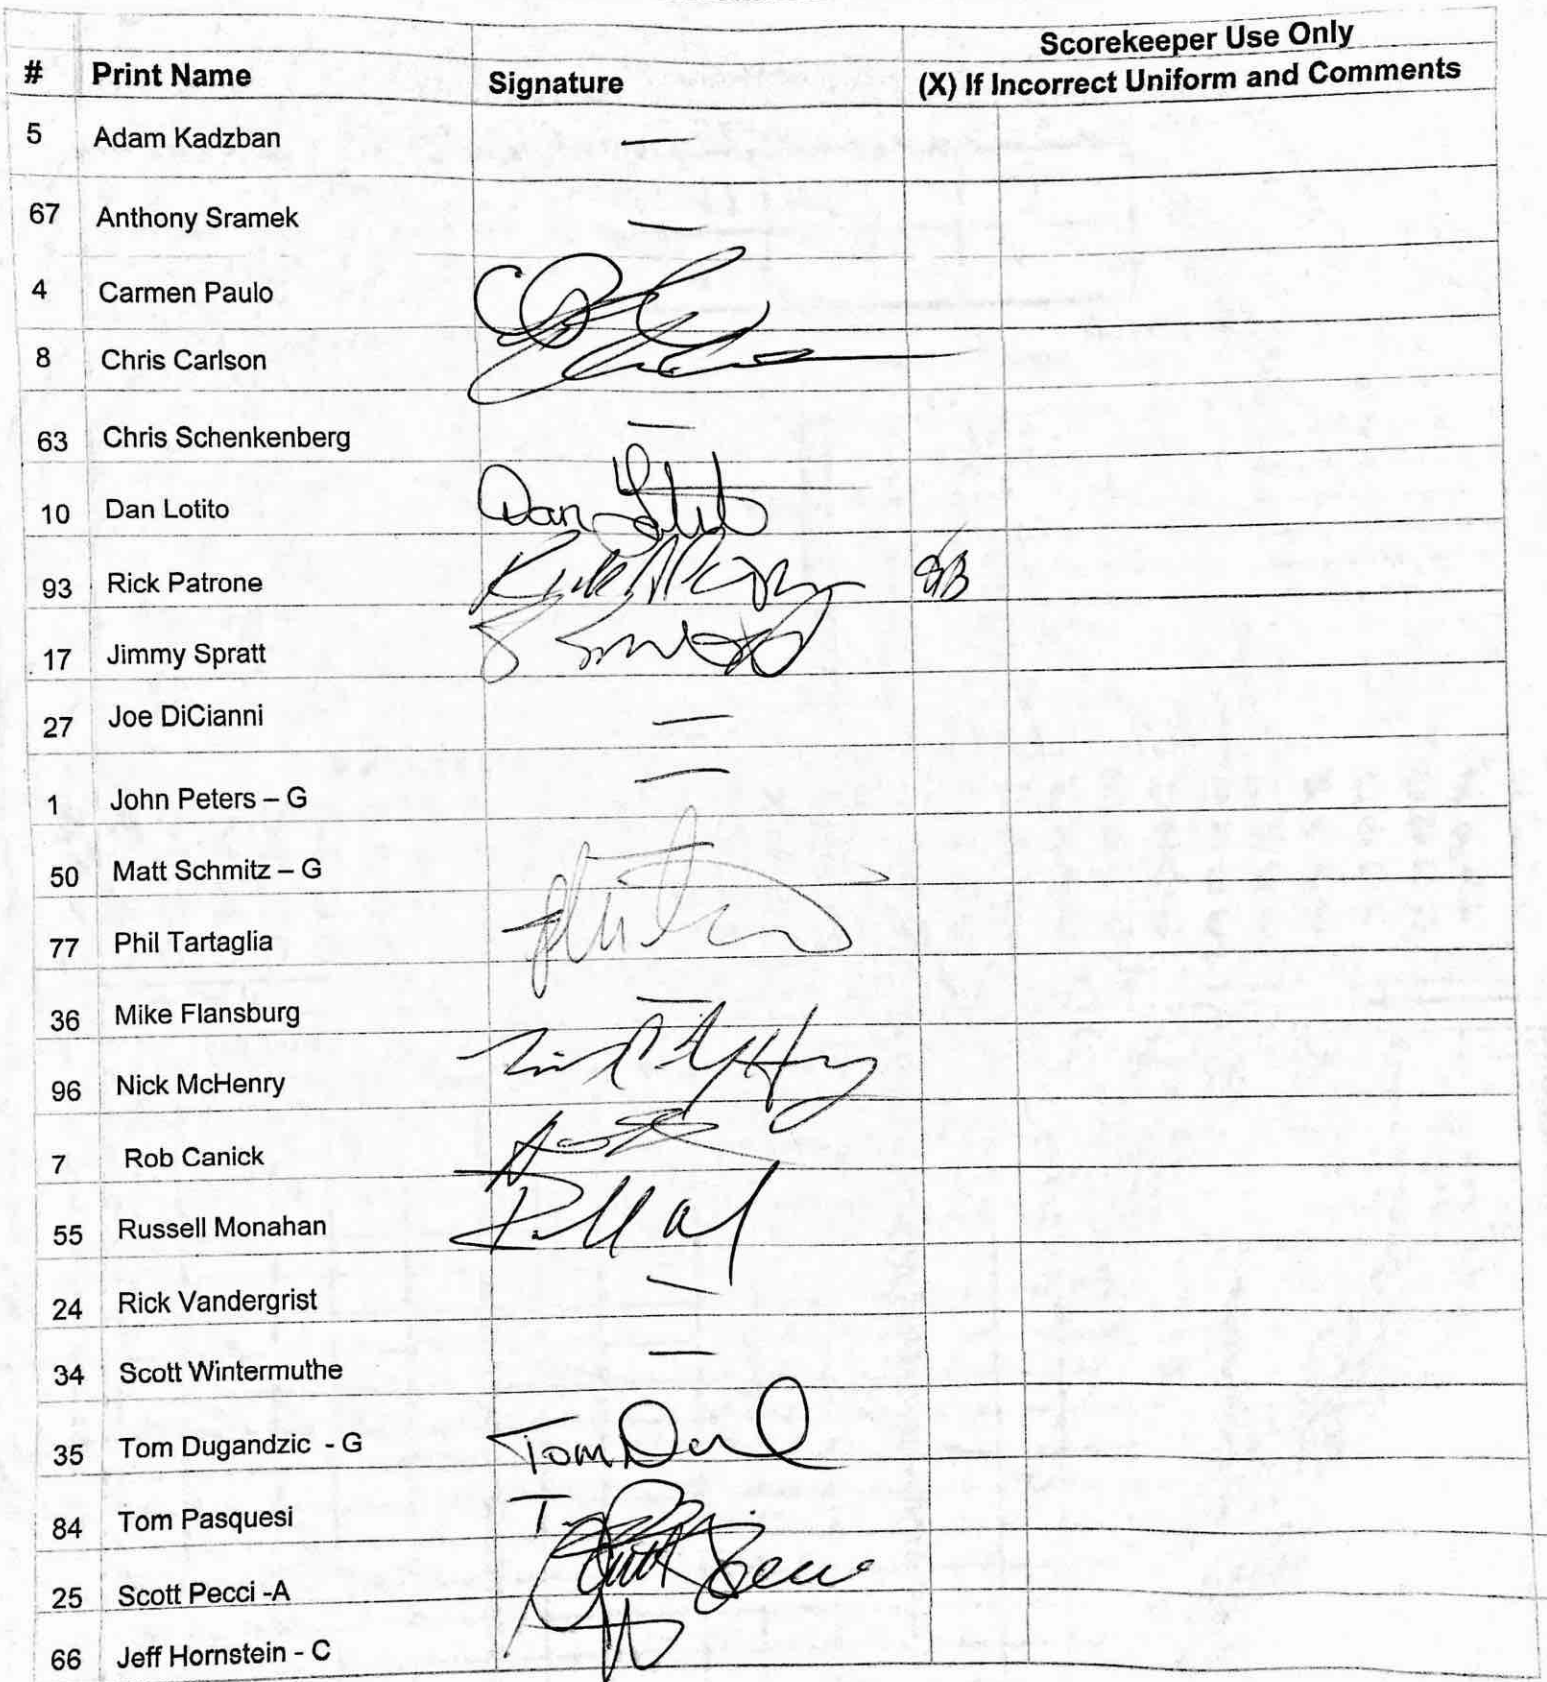 Scorekeeper Use Only
# Print Name Signature (X) If Incorrect Uniform and Comments
5 Adam Kadzban —
67 Anthony Sramek —
4 Carmen Paulo
8 Chris Carlson
63 Chris Schenkenberg —
10 Dan Lotito Dan Lotito
93 Rick Patrone
17 Jimmy Spratt
27 Joe DiCianni —
1 John Peters – G —
50 Matt Schmitz – G
77 Phil Tartaglia
36 Mike Flansburg —
96 Nick McHenry
7 Rob Canick
55 Russell Monahan
24 Rick Vandergrist —
34 Scott Wintermuthe —
35 Tom Dugandzic - G Tom
84 Tom Pasquesi
25 Scott Pecci -A
66 Jeff Hornstein - C